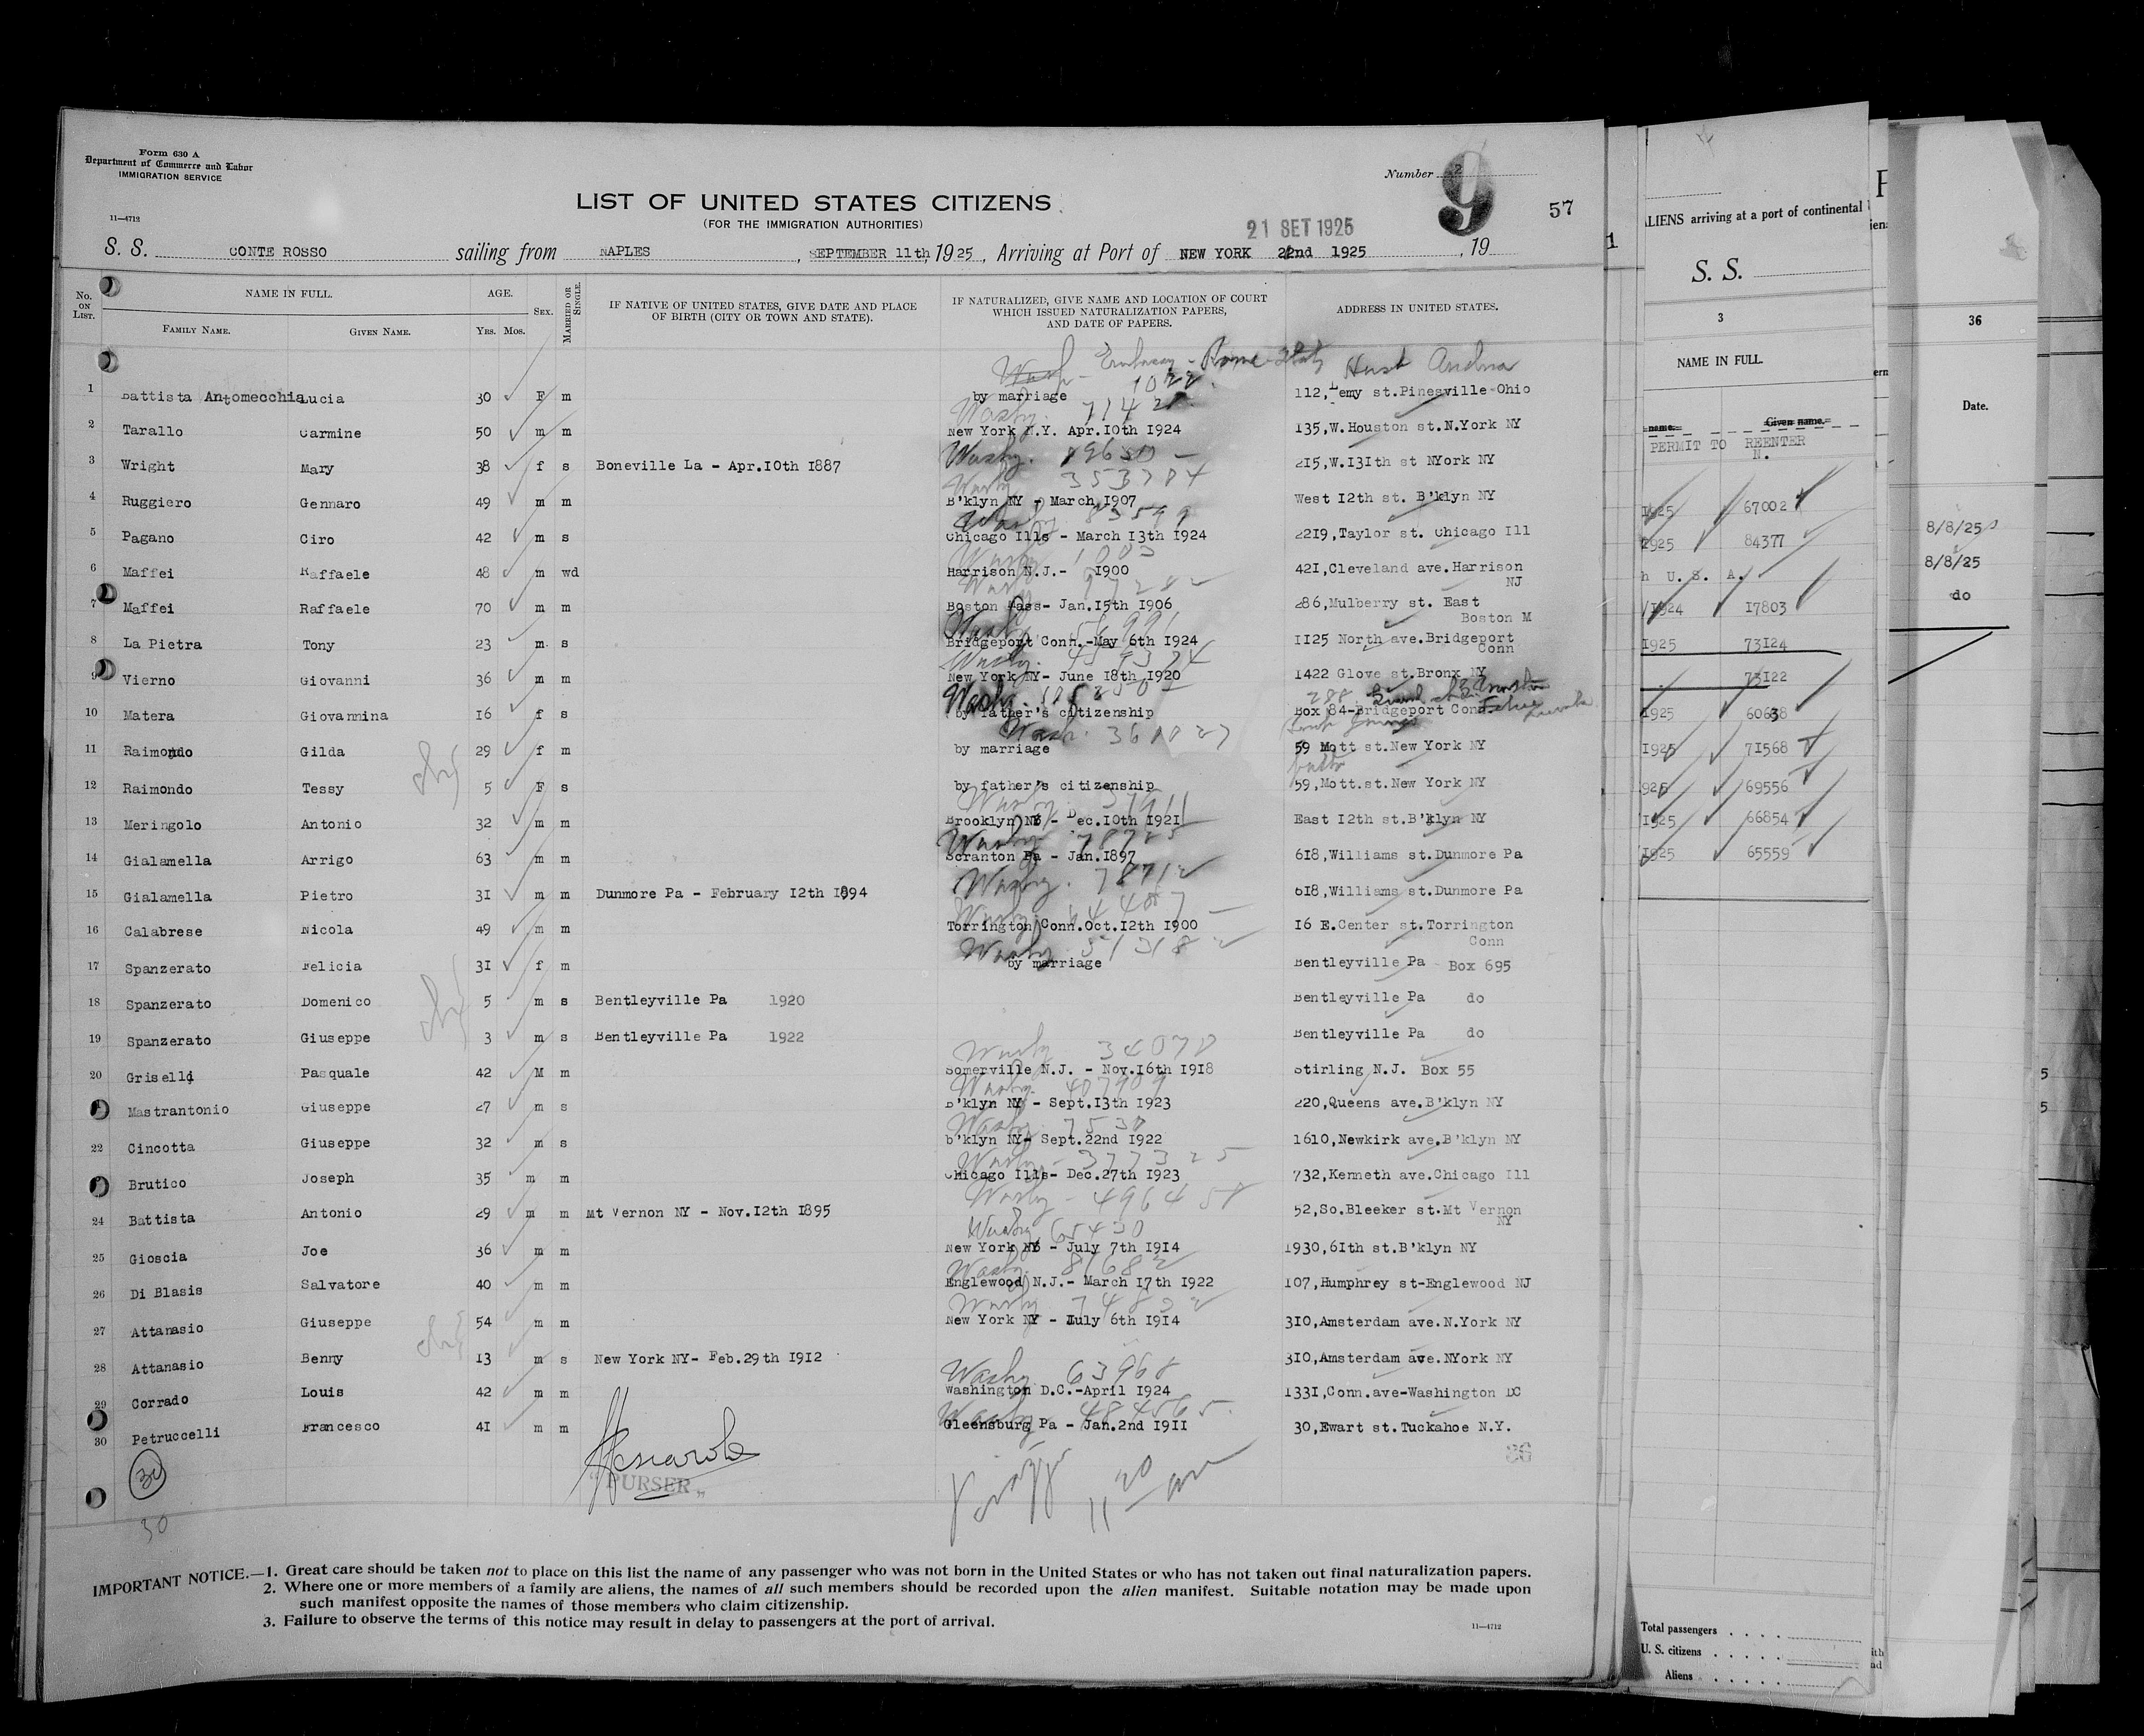 Form 630 A
Department of Commerce and Labor
IMMIGRATION SERVICE
11—4712
Number 2
9
57
LIST OF UNITED STATES CITIZENS
(FOR THE IMMIGRATION AUTHORITIES)
21 SET 1925
S. S. CONTE ROSSO sailing from NAPLES, SEPTEMBER 11th, 1925, Arriving at Port of NEW YORK 22nd 1925, 19
No. ON LIST.
NAME IN FULL.
FAMILY NAME. GIVEN NAME.
AGE.
YRS. MOS.
SEX.
MARRIED OR SINGLE.
IF NATIVE OF UNITED STATES, GIVE DATE AND PLACE
OF BIRTH (CITY OR TOWN AND STATE).
IF NATURALIZED, GIVE NAME AND LOCATION OF COURT
WHICH ISSUED NATURALIZATION PAPERS,
AND DATE OF PAPERS.
ADDRESS IN UNITED STATES.
Wash - Embassy - Rome Italy
1 Battista Antomecchia Lucia 30 F m by marriage 112, emy st.Pinesville-Ohio
Washg.
2 Tarallo Carmine 50 m m New York N.Y. Apr.10th 1924 135,W.Houston st.N.York NY
Washg.
3 Wright Mary 38 f s Boneville La - Apr.10th 1887 215,W.131th st NYork NY
Washg 353784
4 Ruggiero Gennaro 49 m m B'klyn NY - March 1907 West 12th st. B'klyn NY
5 Pagano Ciro 42 m s Chicago Ills - March 13th 1924 2219,Taylor st. Chicago Ill
6 Maffei Raffaele 48 m wd Harrison N.J.- 1900 421,Cleveland ave.Harrison
NJ
7 Maffei Raffaele 70 m m Boston Mass- Jan.15th 1906 286,Mulberry st. East
Boston M
8 La Pietra Tony 23 m. s Bridgeport Conn.-May 6th 1924 1125 North ave.Bridgeport
Conn
Washg.
9 Vierno Giovanni 36 m m New York NY- June 18th 1920 1422 Glove st.Bronx NY
Washg.
10 Matera Giovannina 16 f s by father's citizenship Box 84-Bridgeport Con
Wash. 361027
11 Raimondo Gilda 29 f m by marriage 59 Mott st.New York NY
12 Raimondo Tessy 5 F s by father's citizenship 59,Mott.st.New York NY
13 Meringolo Antonio 32 m m Brooklyn NY - Dec.10th 1921 East 12th st.B'klyn NY
Washg 78725
14 Gialamella Arrigo 63 m m Scranton Pa - Jan.1897 618,Williams st.Dunmore Pa
Washg. 78712
15 Gialamella Pietro 31 m m Dunmore Pa - February 12th 1894 618,Williams st.Dunmore Pa
16 Calabrese Nicola 49 m m Torrington Conn.Oct.12th 1900 16 E.Center st.Torrington
Conn
Washg 51318
17 Spanzerato Felicia 31 f m by marriage Bentleyville Pa Box 695
18 Spanzerato Domenico 5 m s Bentleyville Pa 1920 Bentleyville Pa do
19 Spanzerato Giuseppe 3 m s Bentleyville Pa 1922 Bentleyville Pa do
Washg 34070
20 Griselli Pasquale 42 M m Somerville N.J. - Nov.16th 1918 Stirling N.J. Box 55
Washg 407909
Mastrantonio Giuseppe 27 m s B'klyn NY - Sept.13th 1923 220,Queens ave.B'klyn NY
Washg 7530
22 Cincotta Giuseppe 32 m s b'klyn NY- Sept.22nd 1922 1610,Newkirk ave.B'klyn NY
Washg - 377325
Brutico Joseph 35 m m Chicago Ills- Dec.27th 1923 732,Kenneth ave.Chicago Ill
Washg - 496458
24 Battista Antonio 29 m m Mt Vernon NY - Nov.12th 1895 52,So.Bleeker st.Mt Vernon
NY
Washg 65430
25 Gioscia Joe 36 m m New York NY - July 7th 1914 1930,61th st.B'klyn NY
Washg 81682
26 Di Blasis Salvatore 40 m m Englewood N.J.- March 17th 1922 107,Humphrey st-Englewood NJ
Washg
27 Attanasio Giuseppe 54 m m New York NY - July 6th 1914 310,Amsterdam ave.N.York NY
28 Attanasio Benny 13 m s New York NY- Feb.29th 1912 310,Amsterdam ave.NYork NY
Washg 63968
29 Corrado Louis 42 m m Washington D.C.-April 1924 1331,Conn.ave-Washington DC
Washg 484565
30 Petruccelli Francesco 41 m m Gleensburg Pa - Jan.2nd 1911 30,Ewart st.Tuckahoe N.Y.
30
"PURSER"
30
IMPORTANT NOTICE.—1. Great care should be taken not to place on this list the name of any passenger who was not born in the United States or who has not taken out final naturalization papers.
2. Where one or more members of a family are aliens, the names of all such members should be recorded upon the alien manifest. Suitable notation may be made upon
such manifest opposite the names of those members who claim citizenship.
3. Failure to observe the terms of this notice may result in delay to passengers at the port of arrival.
11—4712
1
ALIENS arriving at a port of continental
S. S.
3
NAME IN FULL.
name. Given name.
PERMIT TO REENTER
N.
1925 67002
1925 84377
h U. S. A.
/1924 17803
1925 73124
73122
1925 60638
1925 71568
925 69556
1925 66854
1925 65559
Total passengers
U. S. citizens
Aliens
36
Date.
8/8/25
8/8/25
do
5
5